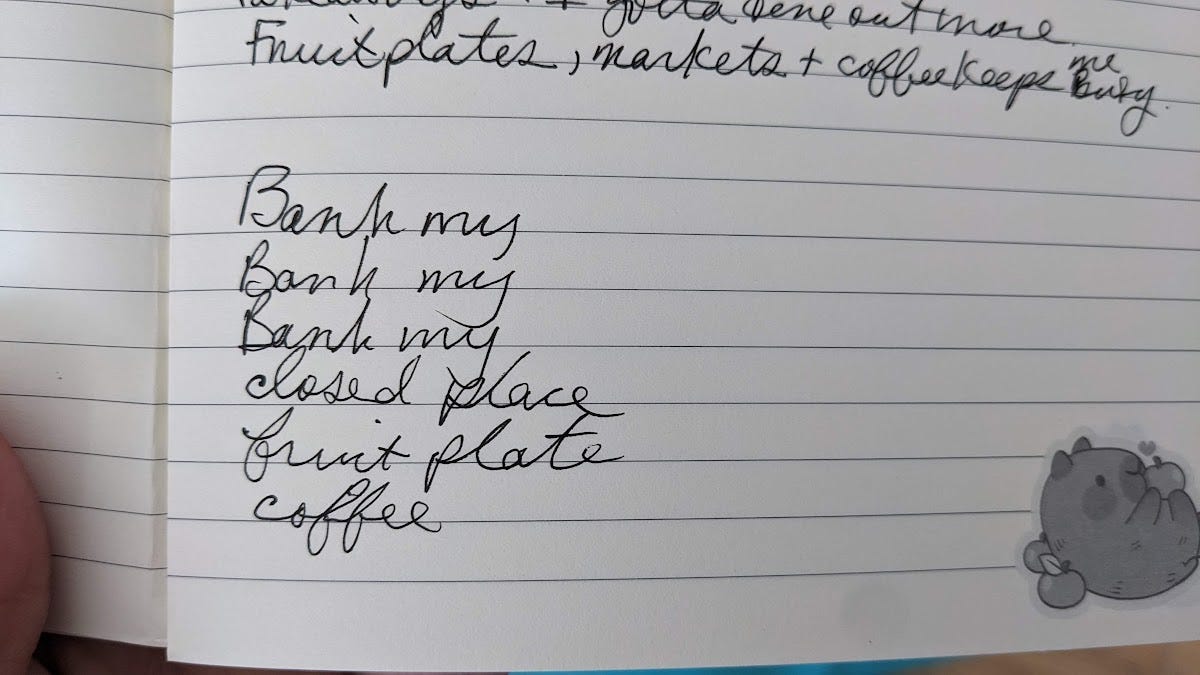 gotta dene out more.
Fruit plates, markets + coffee keeps me Busy.
Bank my
Bank my
Bank my
closed place
fruit plate
coffee